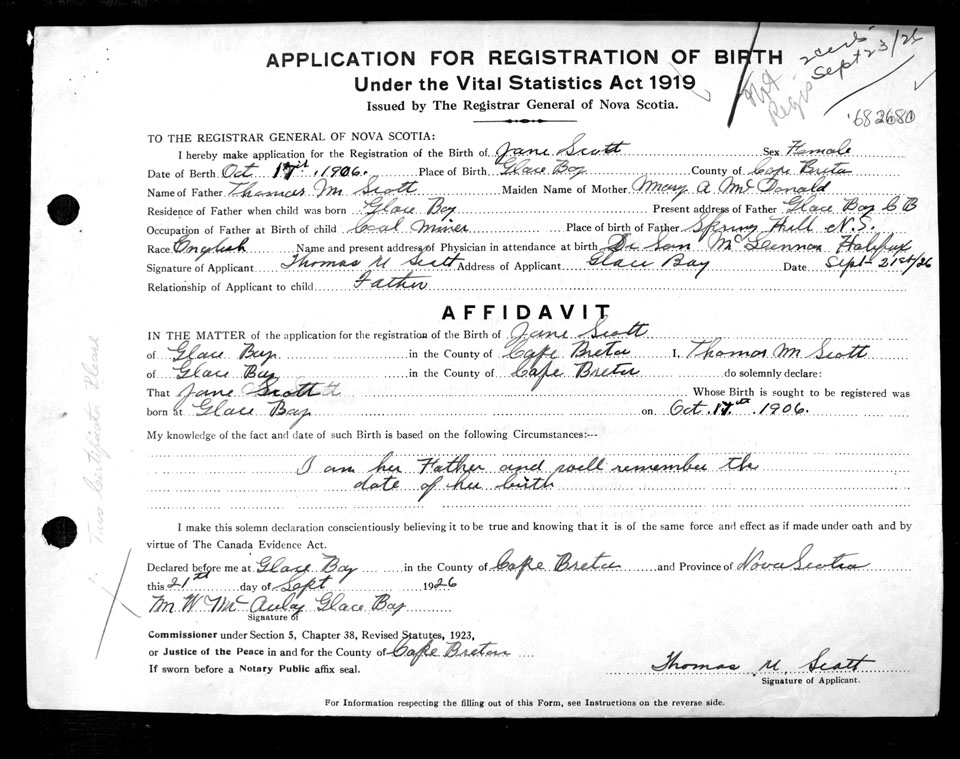 APPLICATION FOR REGISTRATION OF BIRTH
Under the Vital Statistics Act 1919
Issued by The Registrar General of Nova Scotia.
Not Regis
2 certs
Sept 23/26
682680
TO THE REGISTRAR GENERAL OF NOVA SCOTIA:
I hereby make application for the Registration of the Birth of Jane Scott Sex Female
Date of Birth Oct 17th. 1906. Place of Birth Glace Bay County of Cape Breton
Name of Father Thomas M Scott Maiden Name of Mother Mary A McDonald
Residence of Father when child was born Glace Bay Present address of Father Glace Bay C B
Occupation of Father at Birth of child Coal Miner Place of birth of Father Spring Hill N.S.
Race English Name and present address of Physician in attendance at birth Dr McLennon Halifax
Signature of Applicant Thomas M Scott Address of Applicant Glace Bay Date Sept 21st/26
Relationship of Applicant to child Father
AFFIDAVIT
IN THE MATTER of the application for the registration of the Birth of Jane Scott
of Glace Bay in the County of Cape Breton I, Thomas M Scott
of Glace Bay in the County of Cape Breton do solemnly declare:
That Jane Scott Whose Birth is sought to be registered was
born at Glace Bay on Oct. 17th. 1906.
My knowledge of the fact and date of such Birth is based on the following Circumstances:--
I am her Father and well remember the
date of her birth
I make this solemn declaration conscientiously believing it to be true and knowing that it is of the same force and effect as if made under oath and by
virtue of The Canada Evidence Act.
Declared before me at Glace Bay in the County of Cape Breton and Province of Nova Scotia
this 21th day of Sept 1926
M W McAulay Glace Bay
Signature of
Commissioner under Section 5, Chapter 38, Revised Statutes, 1923,
or Justice of the Peace in and for the County of Cape Breton
If sworn before a Notary Public affix seal.
Thomas M. Scott
Signature of Applicant.
For Information respecting the filling out of this Form, see Instructions on the reverse side.
Two Certificates Please